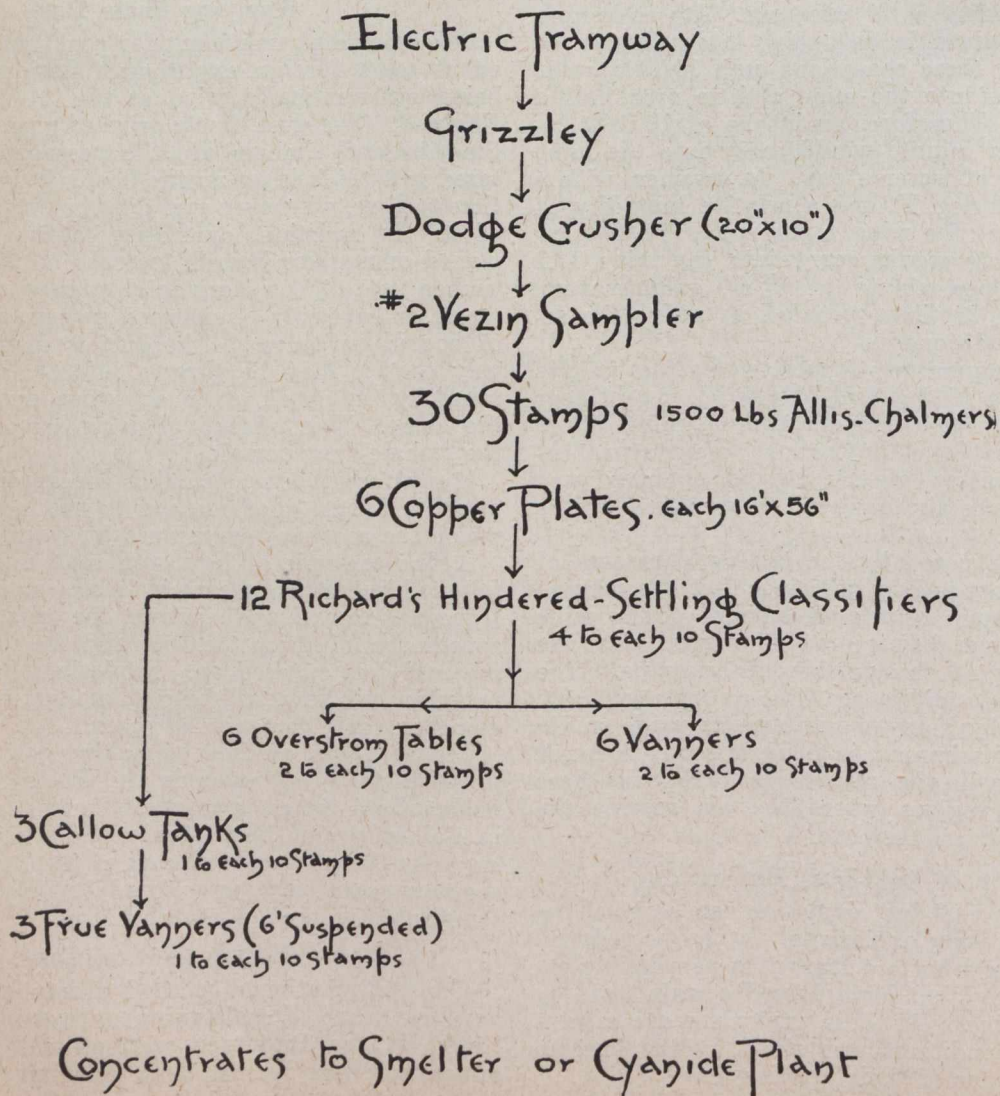 Electric Tramway
Grizzley
Dodge Crusher (20"x10")
#2 Vezin Sampler
30 Stamps 1500 Lbs Allis-Chalmers
6 Copper Plates. Each 16'x56"
12 Richard's Hindered-Settling Classifiers
4 to Each 10 Stamps
6 Overstrom Tables
2 to Each 10 Stamps
6 Vanners
2 to Each 10 Stamps
3 Callow Tanks
1 to Each 10 Stamps
3 Frue Vanners (6' Suspended)
1 to Each 10 Stamps
Concentrates to Smelter or Cyanide Plant